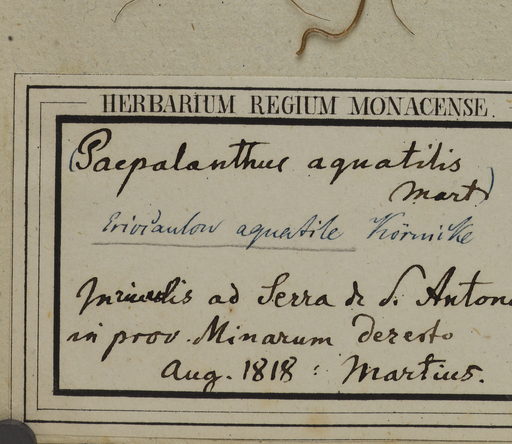 HERBARIUM REGIUM MONACENSE.
(Paepalanthus aquatilis
Mart)
Eriocaulon aquatile Körnicke
In rivulis ad Serra de S. Anton
in prov. Minarum deserto
Aug. 1818 : Martius.